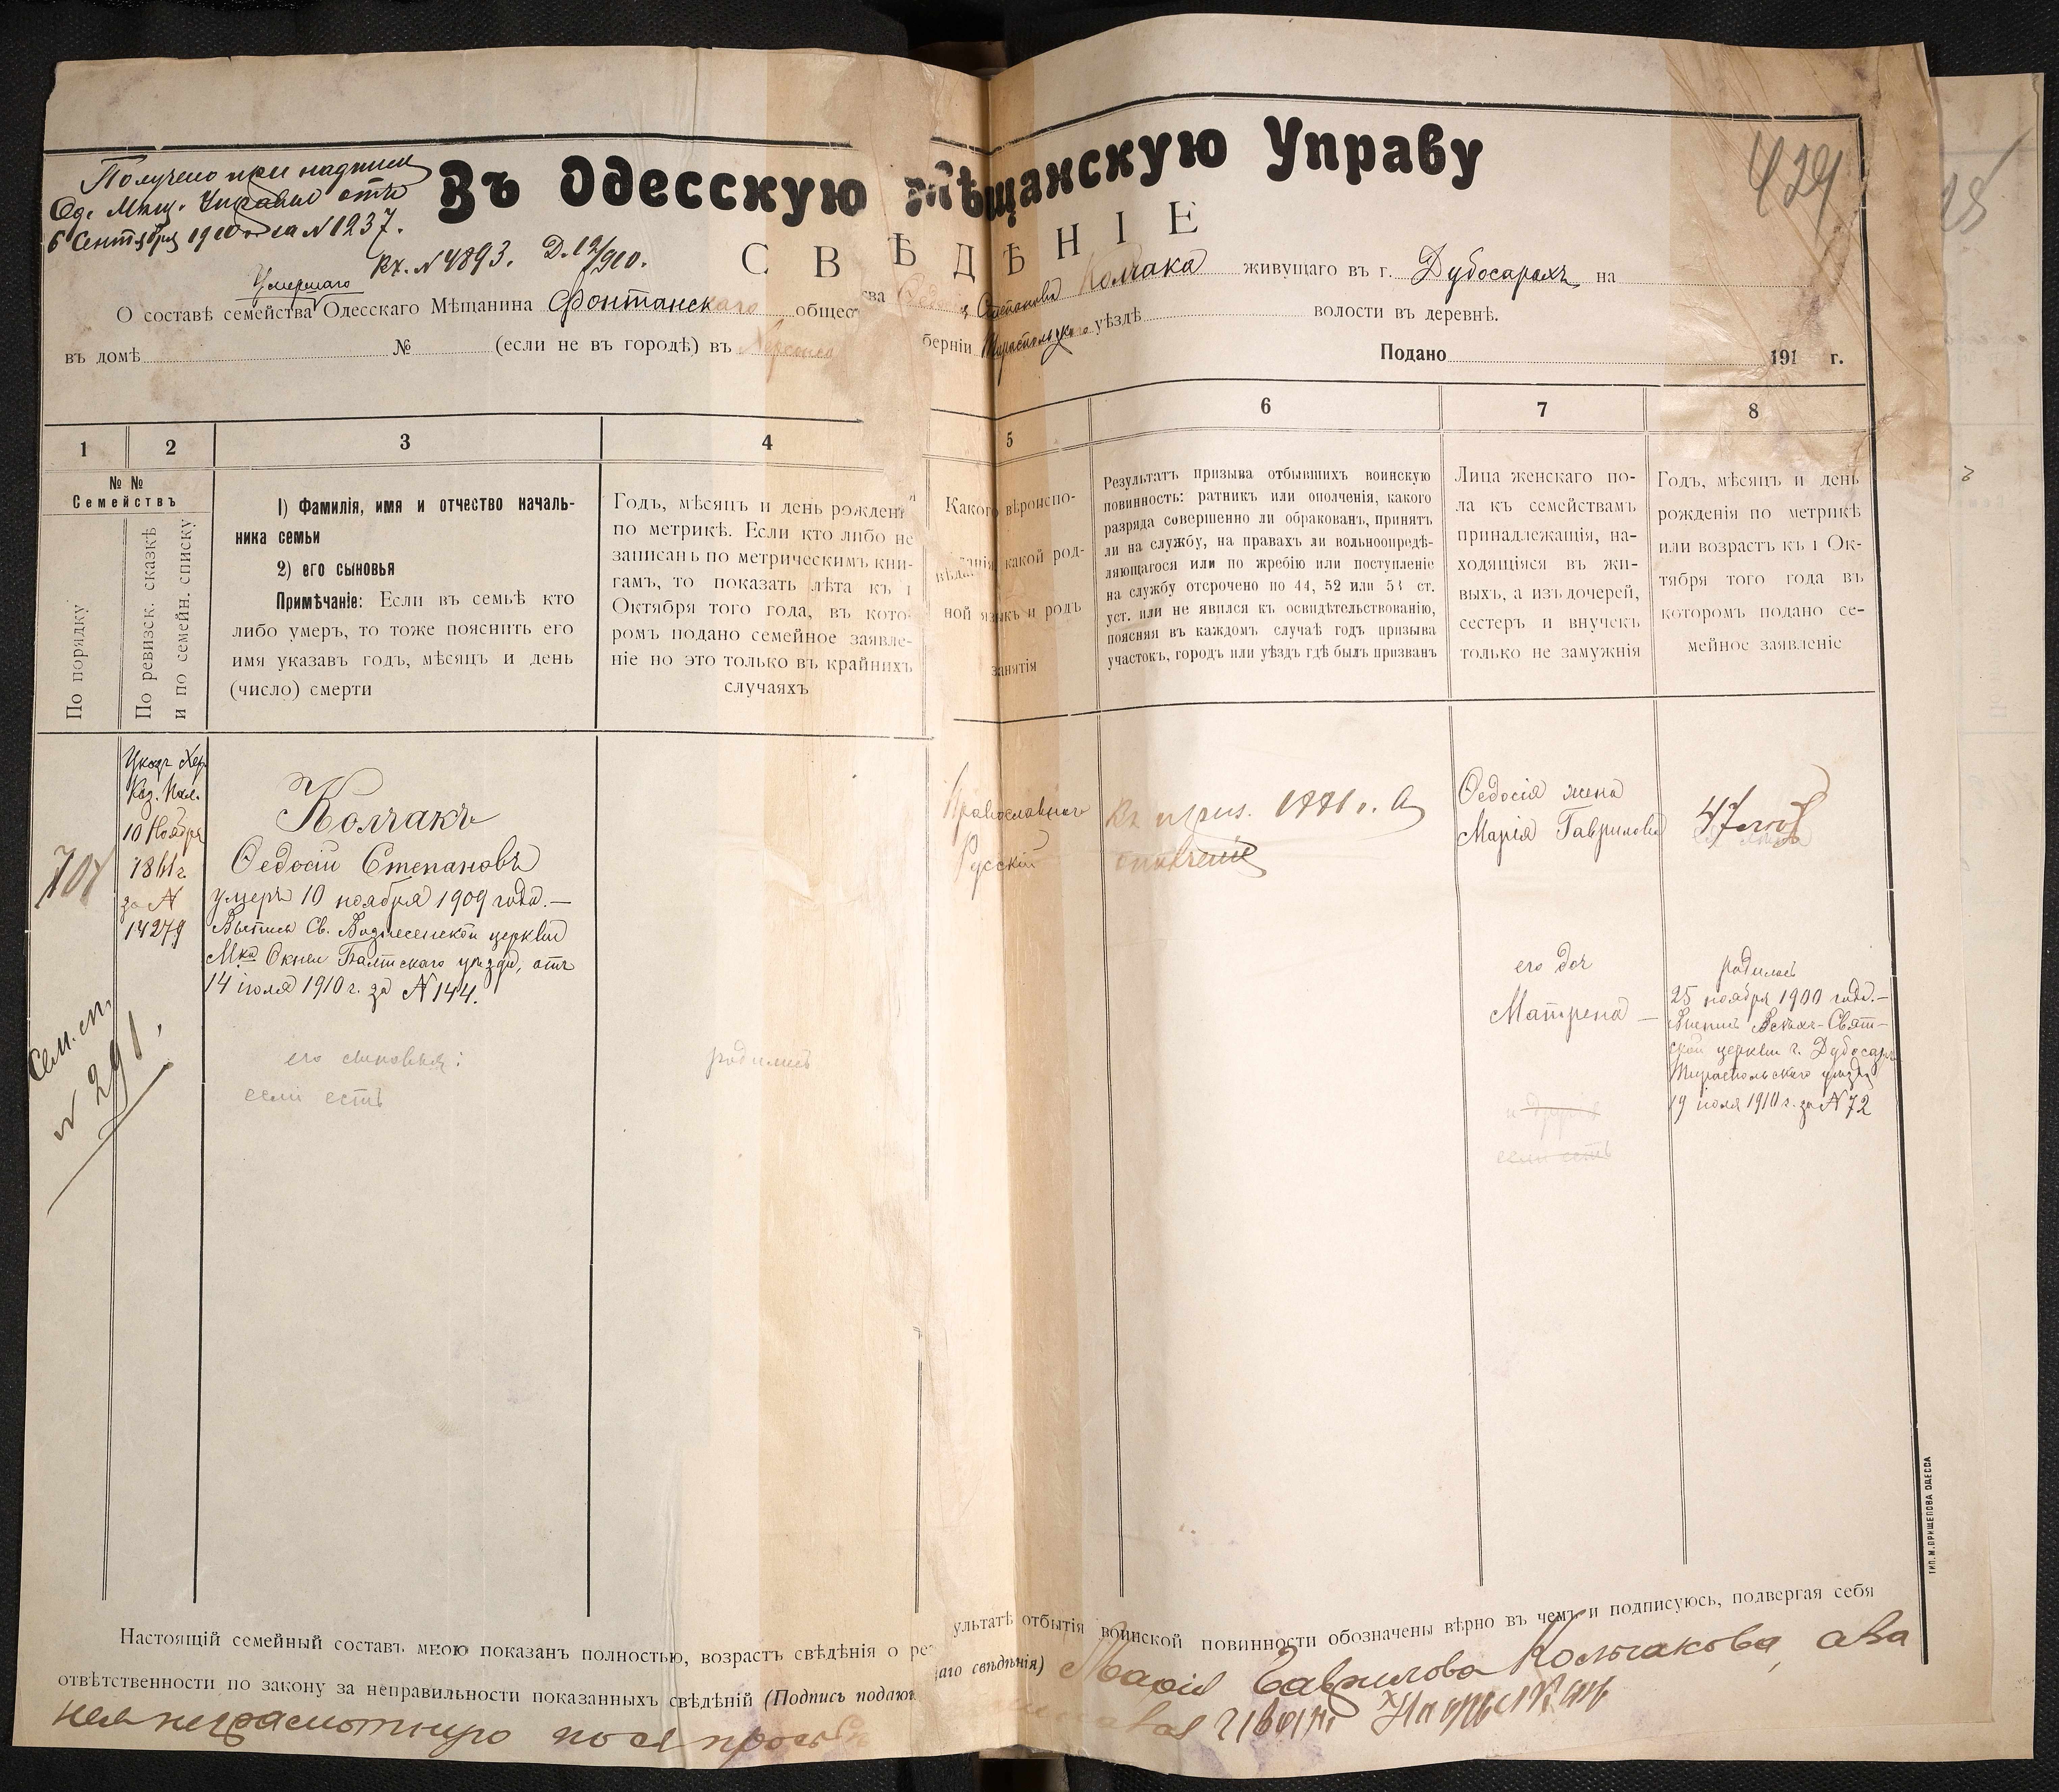 Получено при надписи
Од. Мѣщ. Управы отъ
6 Сентября 1910 года за № 1237.
Вх. № 4893. Д. 12/910.
429
Въ Одесскую Мѣщанскую Управу
СВѢДѢНІЕ
Умершаго
О составѣ семейства Одесскаго Мѣщанина Фонтанскаго общества Ѳедосія Степанова Колчака живущаго въ г. Дубосарахъ на
въ домѣ № (если не въ городѣ) въ Херсонск берніи Тираспольскаго уѣздѣ волости въ деревнѣ.
Подано 191 г.
1 2 3 4 5 6 7 8
№ №
Семействъ
По порядку
По ревизск. сказкѣ
и по семейн. списку
1) Фамилія, имя и отчество началь-
ника семьи
2) его сыновья
Примѣчаніе: Если въ семьѣ кто
либо умеръ, то тоже пояснить его
имя указавъ годъ, мѣсяцъ и день
(число) смерти
Годъ, мѣсяцъ и день рожденія
по метрикѣ. Если кто либо не
записанъ по метрическимъ кни-
гамъ, то показать лѣта къ 1
Октября того года, въ кото-
ромъ подано семейное заявле-
ніе но это только въ крайнихъ
случаяхъ
Какого вѣроиспо-
вѣданія какой род-
ной языкъ и родъ
занятія
Результатъ призыва отбывшихъ воинскую
повинность: ратникъ или ополченія, какого
разряда совершенно ли обракованъ, принятъ
ли на службу, на правахъ ли вольноопредѣ-
ляющагося или по жребію или поступленіе
на службу отсрочено по 44, 52 или 53 ст.
уст. или не явился къ освидѣтельствованію,
поясняя въ каждомъ случаѣ годъ призыва
участокъ, городъ или уѣздъ гдѣ былъ призванъ
Лица женскаго по-
ла къ семействамъ
принадлежащія, на-
ходящіяся въ жи-
выхъ, а изъ дочерей,
сестеръ и внучекъ
только не замужнія
Годъ, мѣсяцъ и день
рожденія по метрикѣ
или возрастъ къ 1 Ок-
тября того года въ
которомъ подано се-
мейное заявленіе
707
Указ Хер.
Каз. Пал.
10 Ноября
1861 г.
за №
14279
Сем. сп.
№ 291.
Колчакъ
Ѳедосій Степановъ
умеръ 10 ноября 1909 года.—
Выпись Св. Вознесенской церкви
Мка Окны Балтскаго уѣзда, отъ
14 іюля 1910 г. за № 144.
его сыновья:
если есть
родились
Православнаго
Русскій
въ приз. 1881 г.
ополченіе
Ѳедосія жена
Марія Гаврилова
47 лѣтъ
его доч
Матрена —
родилась
25 ноября 1900 года.—
Выпись Всѣхъ-Свят-
ской церкви г. Дубосаръ
Тираспольскаго уѣзда
19 іюля 1910 г. за № 72
и другія
если есть
Настоящій семейный составъ мною показанъ полностью, возрастъ свѣдѣнія о результатѣ отбытія воинской повинности обозначены вѣрно въ чемъ и подписуюсь, подвергая себя
отвѣтственности по закону за неправильности показанныхъ свѣдѣній (Подпись подаю щаго свѣдѣнія) Марія Гаврилова Кольчакова, аза
нея неграмотную по ея прозьбѣ
ТИП. М. ПРИЩЕПОВА ОДЕССА